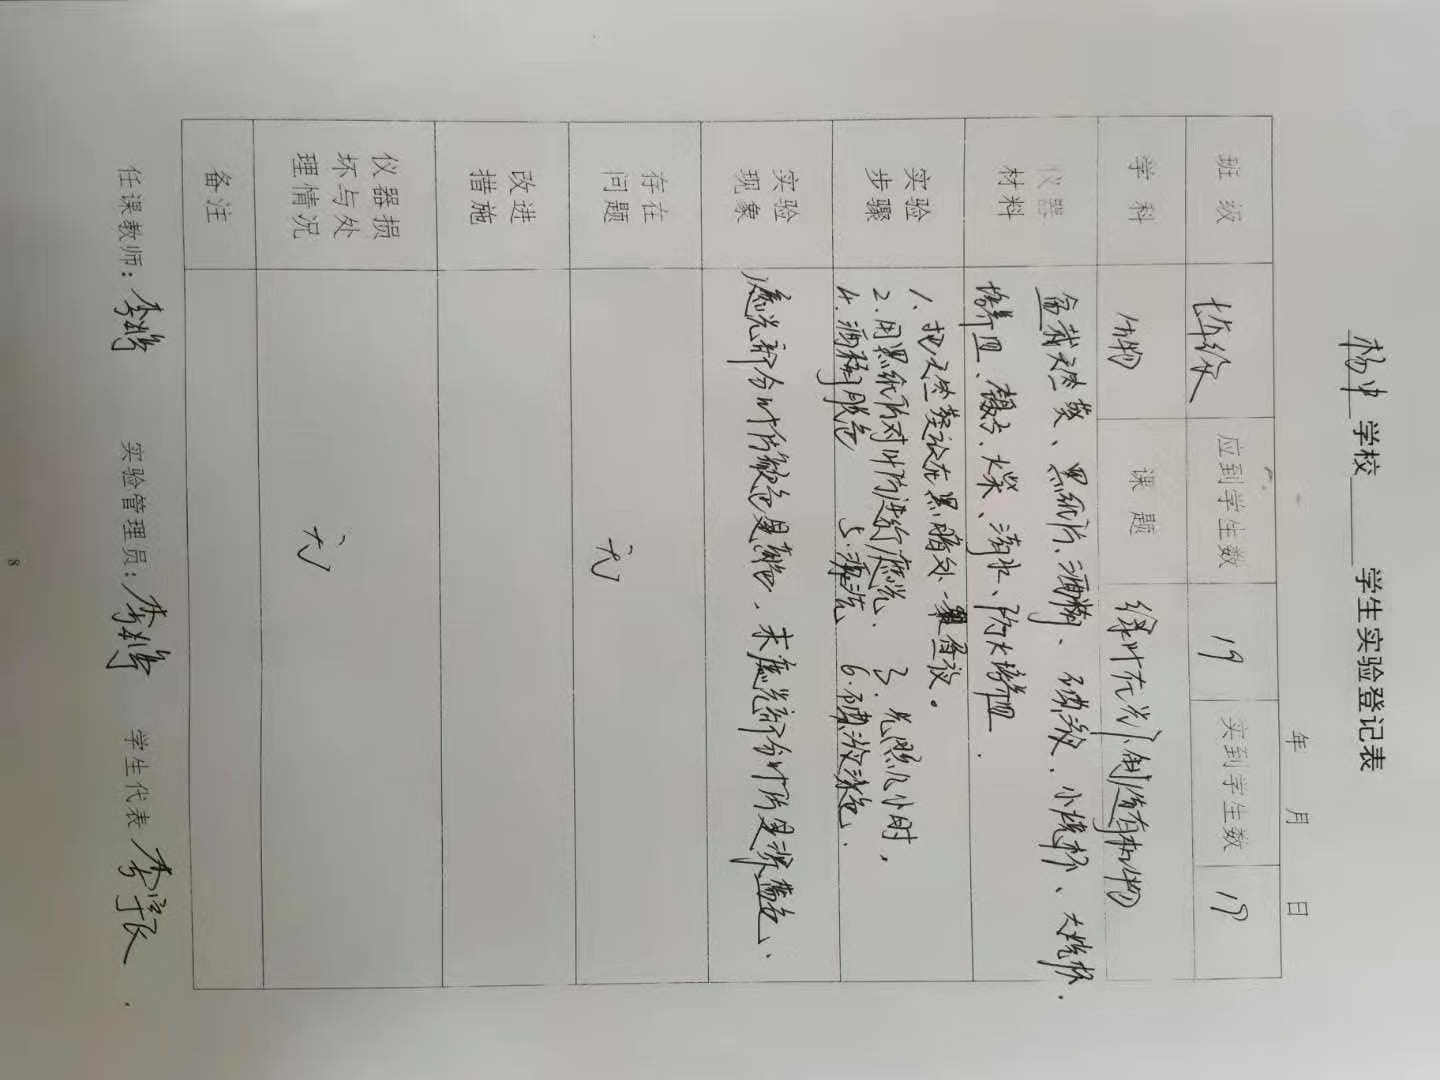 杨中学校 学生实验登记表
年 月 日
班级 七年级 应到学生数 19 实到学生数 19
学科 生物 课题 绿叶在光下制造有机物
仪器材料 盆栽天竺葵、黑纸片、酒精、碘液、小烧杯、大烧杯、
培养皿、镊子、火柴、清水、
实验步骤 1、把天竺葵放在黑暗处一昼夜。
2、用黑纸片对叶片进行遮光、 3、光照几小时、
4、酒精脱色 5、漂洗 6、碘液染色、
实验现象 遮光部分叶片颜色是 、未遮光部分叶片是深蓝色、
存在问题 无
改进措施
仪器损坏与处理情况 无
备注
任课教师: 李 实验管理员: 李 学生代表 李
8